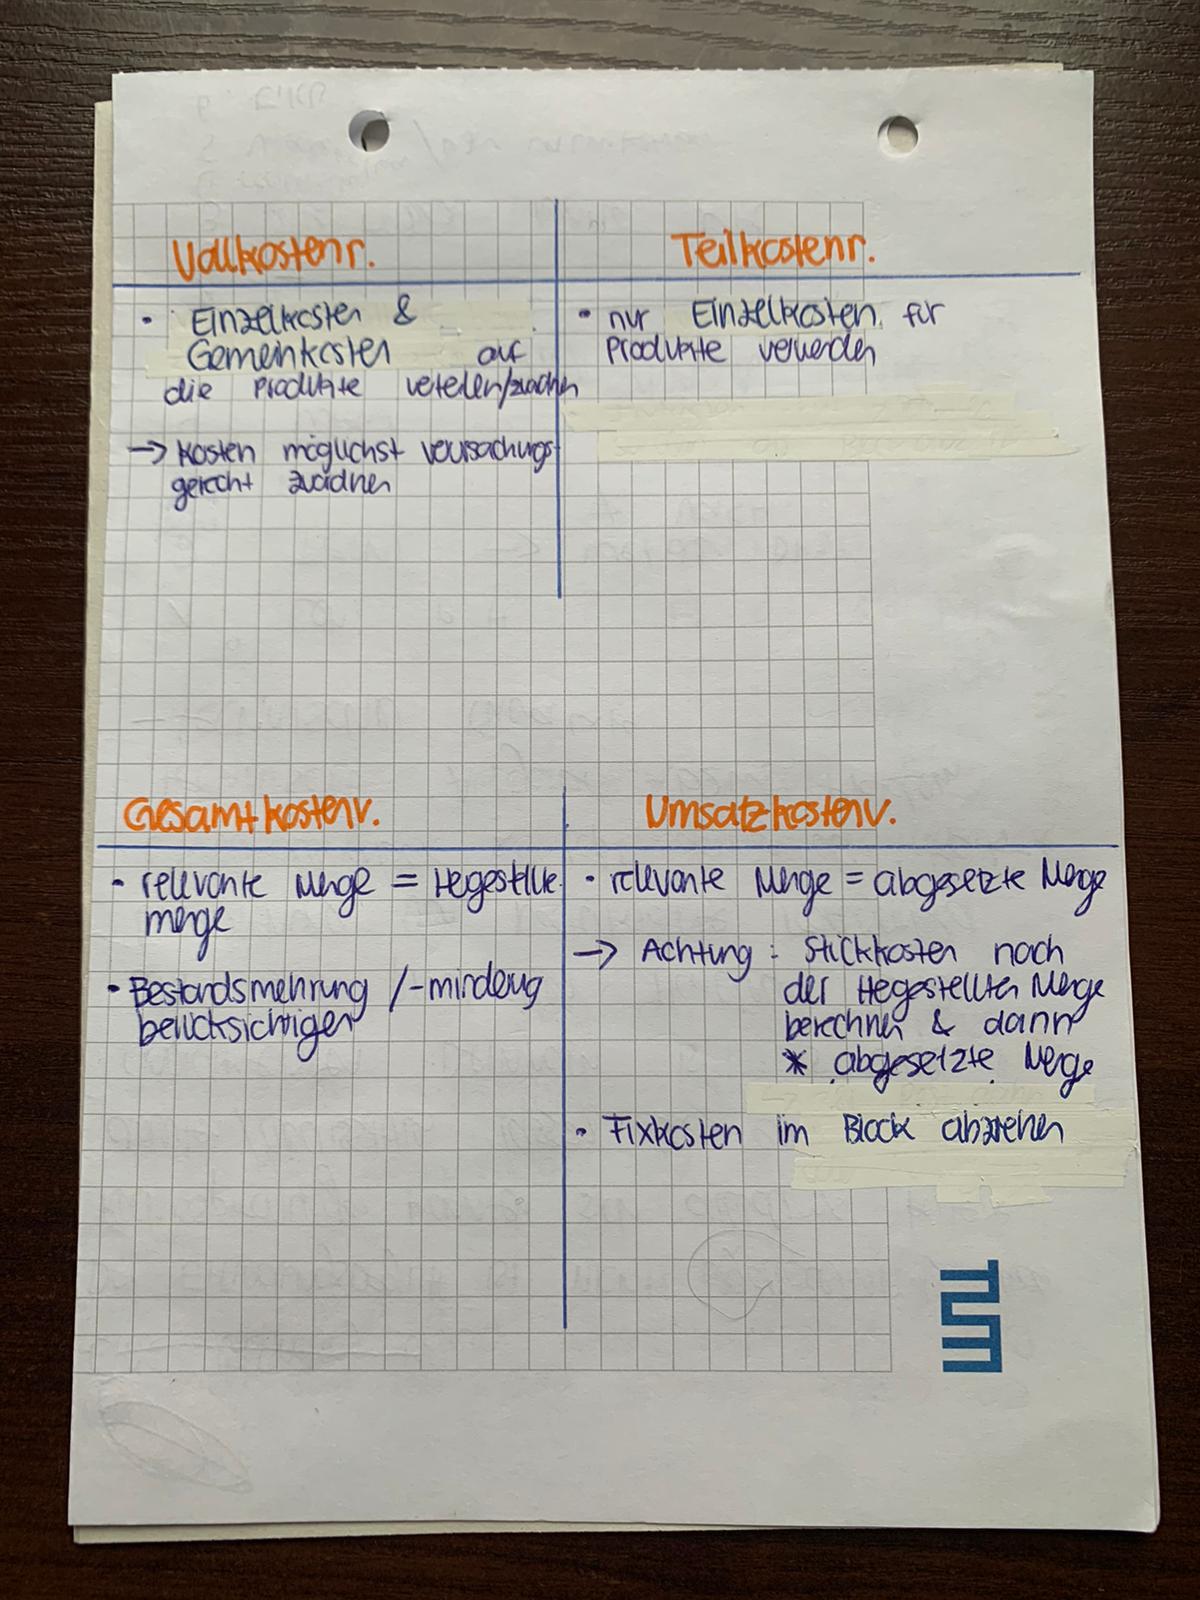 Vollkostenr.
Teilkostenr.
• Einzelkosten &
Gemeinkosten auf
die Produkte verteilen/zuordnen
→ Kosten möglichst verursachungs-
gerecht zuordnen
• nur Einzelkosten für
Produkte verwenden
Gesamtkostenv.
Umsatzkostenv.
• relevante Menge = Hergestellte
menge
• Bestandsmehrung /-minderung
berücksichtigen
• relevante Menge = abgesetzte Menge
→ Achtung: Stückkosten nach
der Hergestellten Menge
berechnen & dann
* abgesetzte Menge
• Fixkosten im Block abziehen
TUM